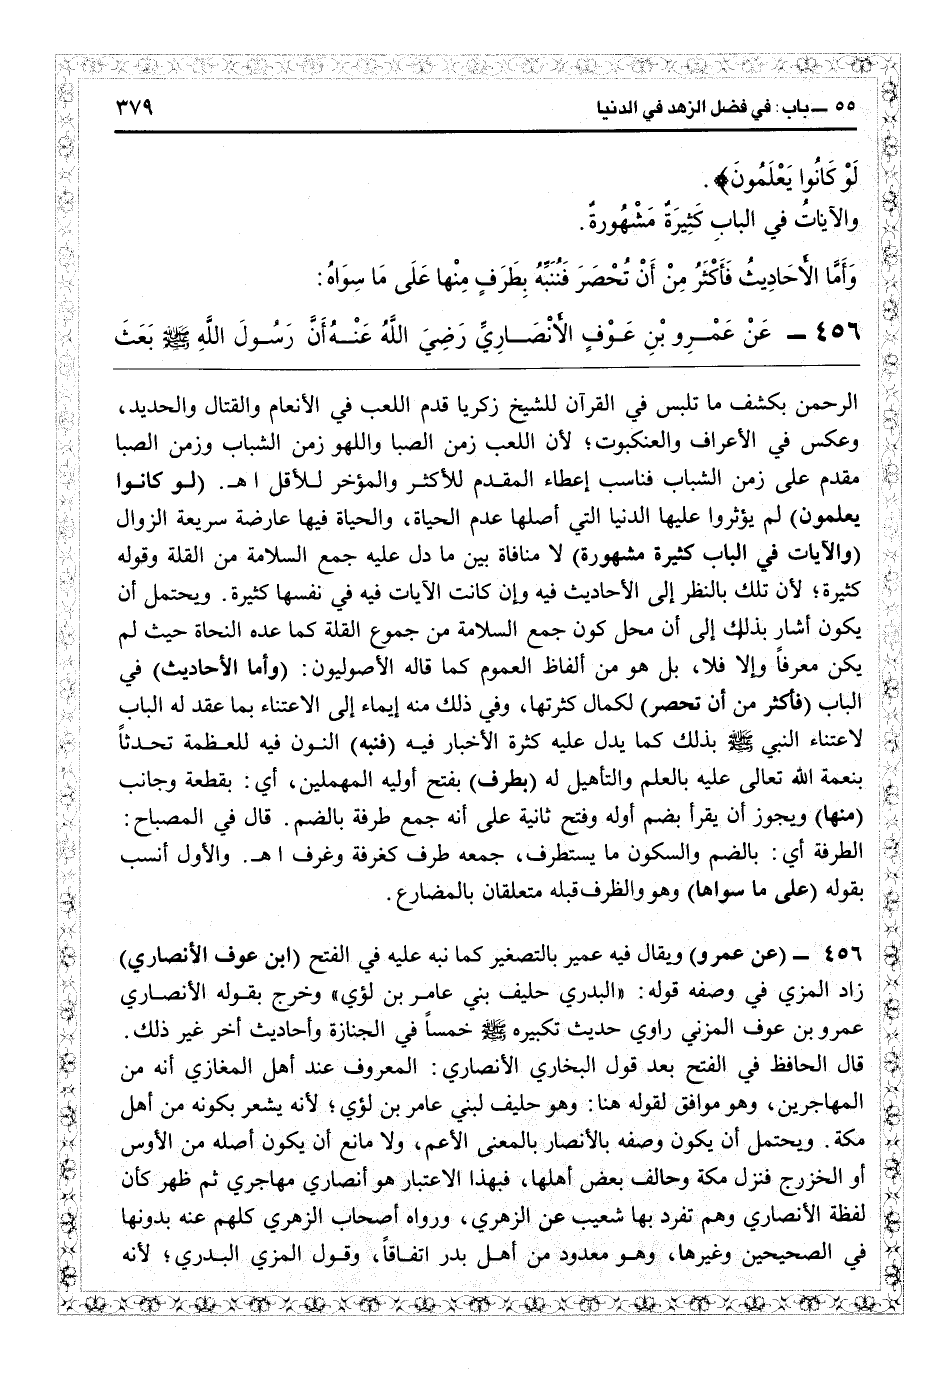 ٥٥ ــ باب: في فضل الزهد في الدنيا ٣٧٩
لَوْ كَانُوا يَعْلَمُونَ﴾.
والآياتُ في البابِ كَثِيرَةٌ مَشْهُورةٌ.
وَأَمَّا الْأَحَادِيثُ فَأَكْثَرُ مِنْ أَنْ تُحْصَرَ فَنُنَبِّهُ بِطَرَفٍ مِنْها عَلَى مَا سِوَاهُ:
٤٥٦ ــ عَنْ عَمْـرِو بْنِ عَـوْفٍ الْأَنْصَـارِيِّ رَضِيَ اللَّهُ عَنْـهُ أَنَّ رَسُـولَ اللَّهِ ﷺ بَعَثَ
الرحمن بكشف ما تلبس في القرآن للشيخ زكريا قدم اللعب في الأنعام والقتال والحديد،
وعكس في الأعراف والعنكبوت؛ لأن اللعب زمن الصبا واللهو زمن الشباب وزمن الصبا
مقدم على زمن الشباب فناسب إعطاء المقـدم للأكثـر والمؤخر لـلأقل ا هـ. (لـو كانـوا
يعلمون) لم يؤثروا عليها الدنيا التي أصلها عدم الحياة، والحياة فيها عارضة سريعة الزوال
(والآيات في الباب كثيرة مشهورة) لا منافاة بين ما دل عليه جمع السلامة من القلة وقوله
كثيرة؛ لأن تلك بالنظر إلى الأحاديث فيه وإن كانت الآيات فيه في نفسها كثيرة. ويحتمل أن
يكون أشار بذلك إلى أن محل كون جمع السلامة من جموع القلة كما عده النحاة حيث لم
يكن معرفاً وإلا فلا، بل هو من ألفاظ العموم كما قاله الأصوليون: (وأما الأحاديث) في
الباب (فأكثر من أن تحصر) لكمال كثرتها، وفي ذلك منه إيماء إلى الاعتناء بما عقد له الباب
لاعتناء النبي ﷺ بذلك كما يدل عليه كثرة الأخبار فيـه (فنبه) النـون فيه للعـظمة تحـدثاً
بنعمة الله تعالى عليه بالعلم والتأهيل له (بطرف) بفتح أوليه المهملين، أي: بقطعة وجانب
(منها) ويجوز أن يقرأ بضم أوله وفتح ثانية على أنه جمع طرفة بالضم. قال في المصباح:
الطرفة أي: بالضم والسكون ما يستطرف، جمعه طرف كغرفة وغرف ا هـ. والأول أنسب
بقوله (على ما سواها) وهو والظرف قبله متعلقان بالمضارع.
٤٥٦ ــ (عن عمرو) ويقال فيه عمير بالتصغير كما نبه عليه في الفتح (ابن عوف الأنصاري)
زاد المزي في وصفه قوله: «البدري حليف بني عامـر بن لؤي» وخرج بقـوله الأنصـاري
عمرو بن عوف المزني راوي حديث تكبيره ﷺ خمسـاً في الجنازة وأحاديث أخر غير ذلك.
قال الحافظ في الفتح بعد قول البخاري الأنصاري: المعروف عند أهل المغازي أنه من
المهاجرين، وهو موافق لقوله هنا: وهو حليف لبني عامر بن لؤي؛ لأنه يشعر بكونه من أهل
مكة. ويحتمل أن يكون وصفه بالأنصار بالمعنى الأعم، ولا مانع أن يكون أصله من الأوس
أو الخزرج فنزل مكة وحالف بعض أهلها، فبهذا الاعتبار هو أنصاري مهاجري ثم ظهر كأن
لفظة الأنصاري وهم تفرد بها شعيب عن الزهري، ورواه أصحاب الزهري كلهم عنه بدونها
في الصحيحين وغيرها، وهـو معدود من أهـل بدر اتفـاقاً، وقـول المزي البـدري؛ لأنه